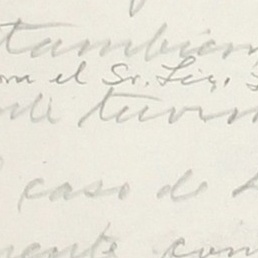 también
con el Sr. Lic.
tuvi
caso de
mente con